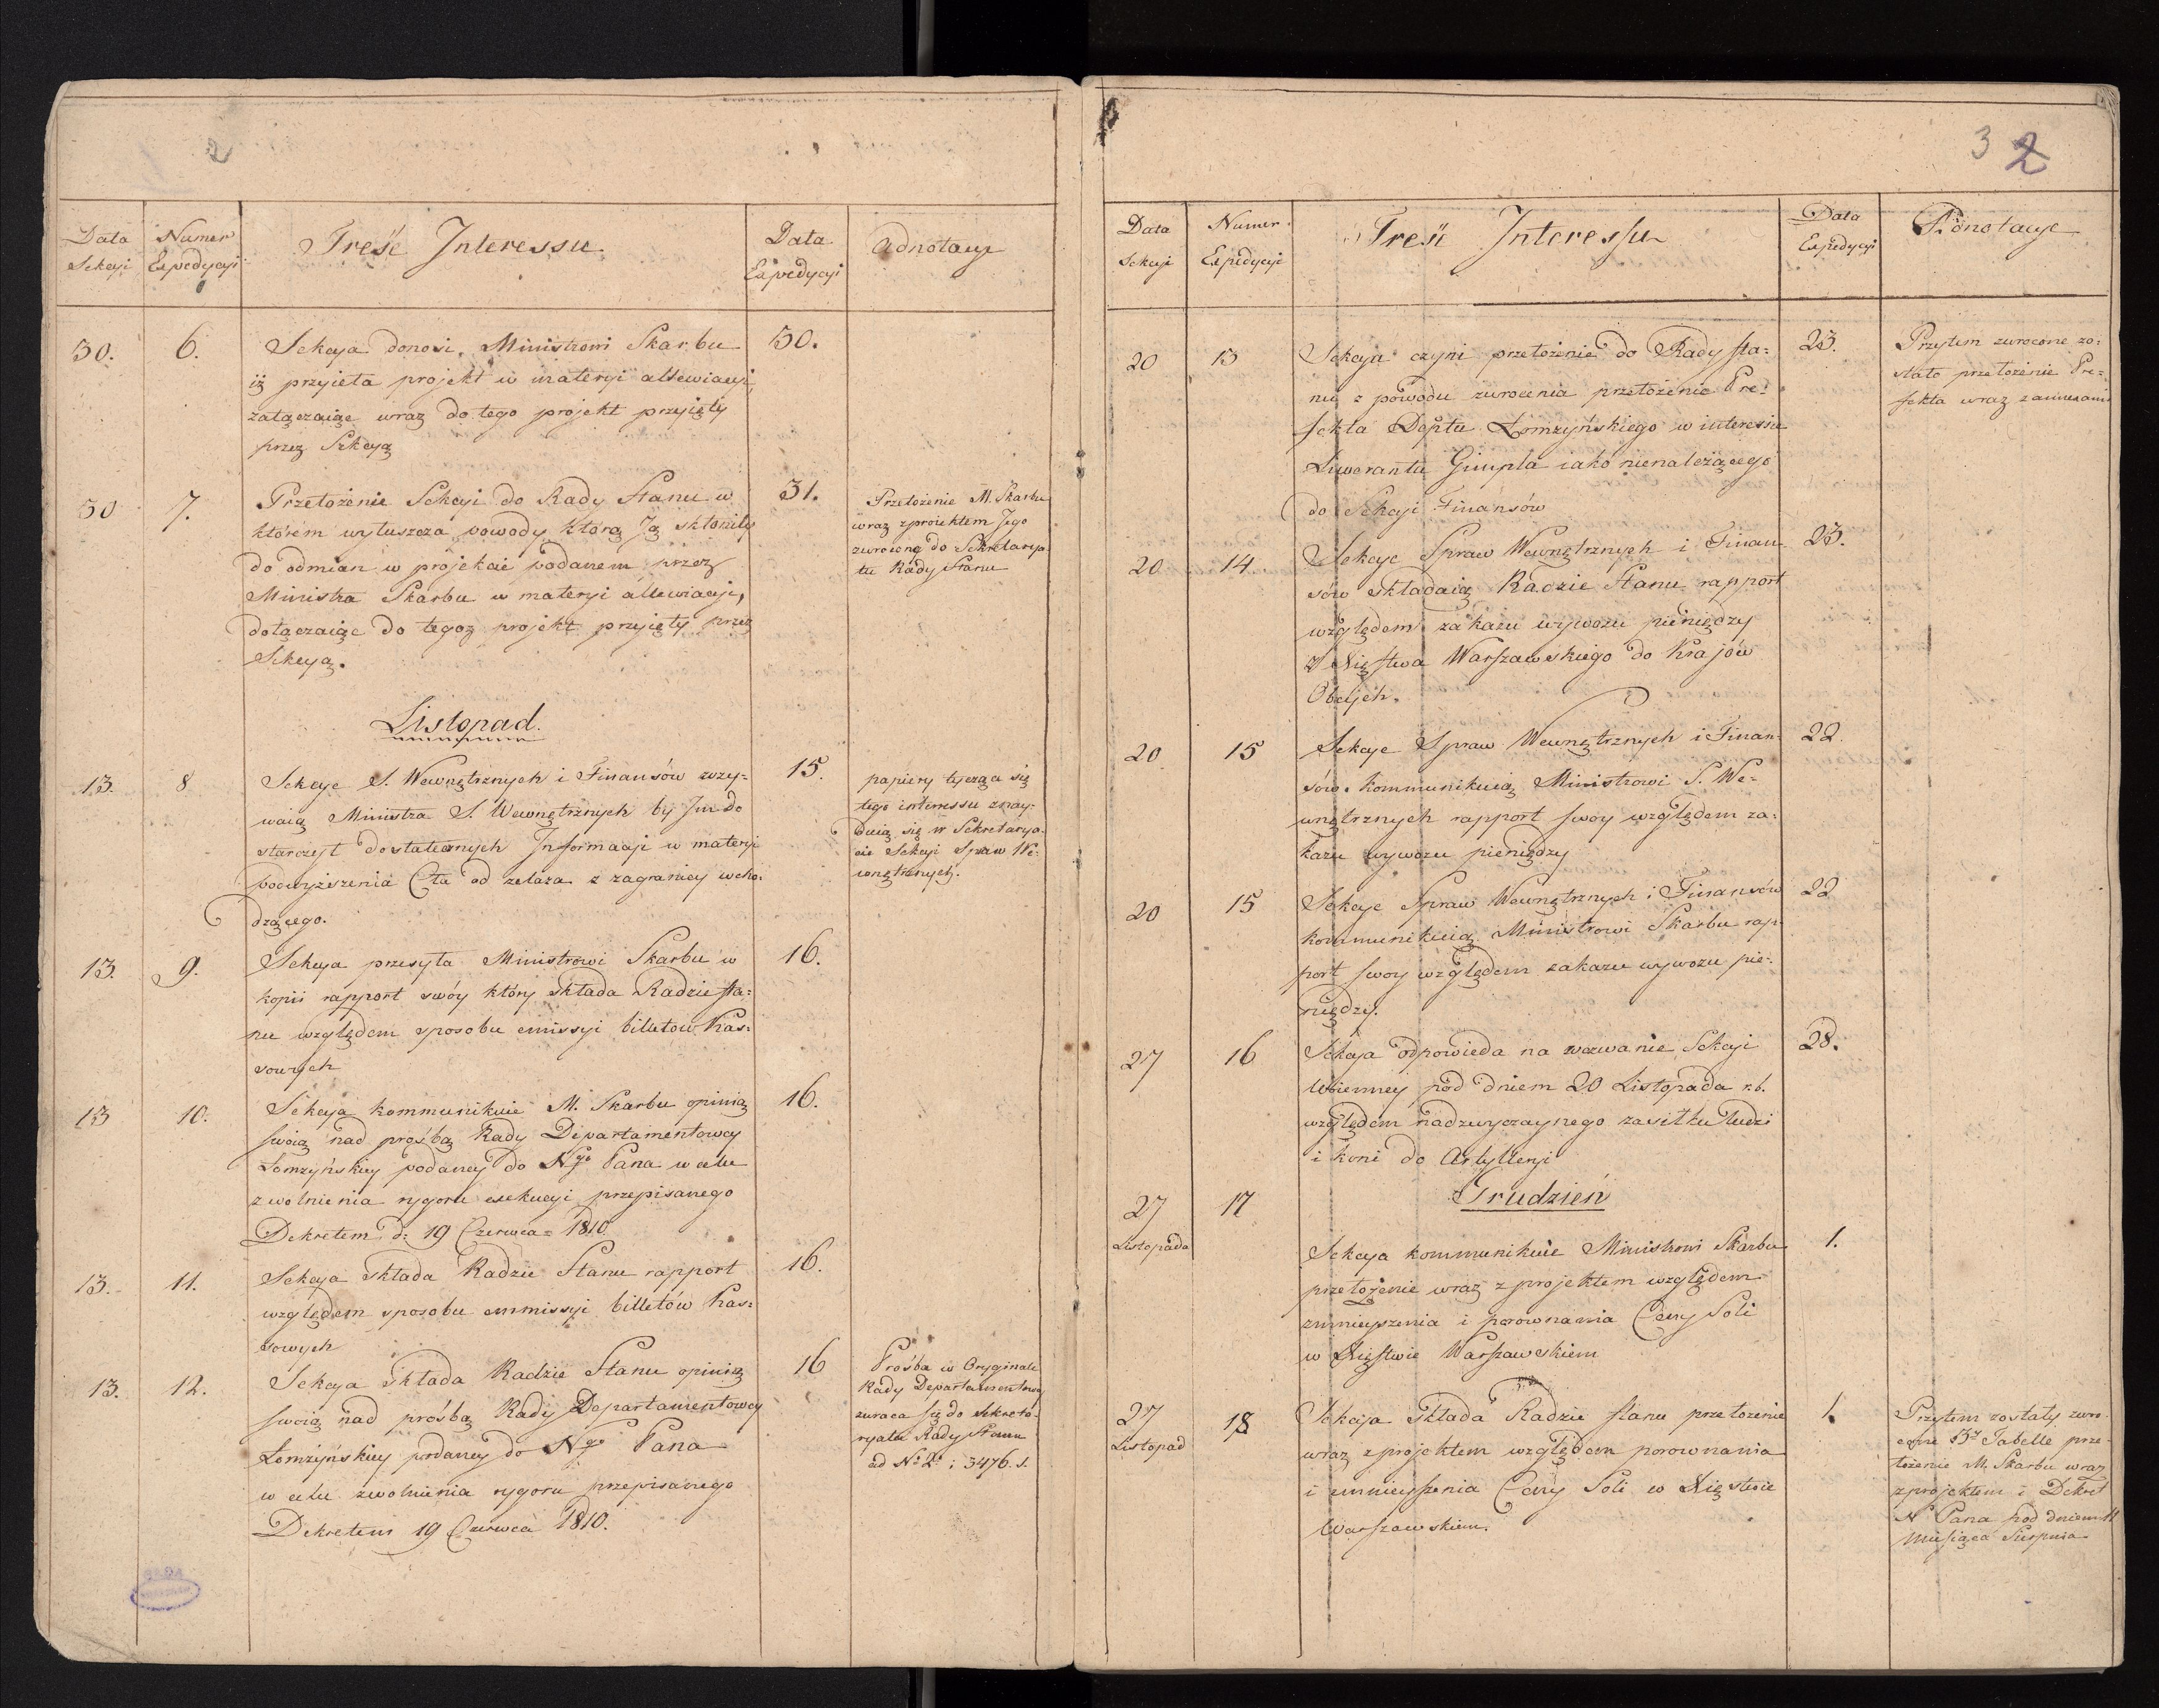 2
Data Sekcyi
Numer Expedycyi
Treść Interessu
Data Expedycyi
Adnotacye
30. 6. Sekcya donosi Ministrowi Skarbu 30.
iż przyięła projekt w materyi allewiacyi,
załączaiąc wraz do tego projekt przyięty
przez Sekcyą
30 7. Przełożenie Sekcyi do Rady Stanu w 31.
którem wyłuszcza powody którą Ją skłoniły
do odmian w projekcie podanem przez
Ministra Skarbu w materyi allewiacyi,
dołączaiąc do tegoż projekt przyięty przez
Sekcyą.
Przełożenie M. Skarbu
wraz z proiektem Jego
zwrócone do Sekretarya-
tu Rady Stanu
Listopad.
13. 8 Sekcye S. Wewnętrznych i Finansów wzy= 15.
waią Ministra S. Wewnętrznych by Im do
starczył dostatecznych Informacji w materyi
podwyższenia Cła od żelaza z zagranicy wcho-
dzącego.
papiery tycząca się
tego interessu znay-
duią się w Sekretarya-
cie Sekcyi Spraw We-
wnętrznych.
13. 9. Sekcya przesyła Ministrowi Skarbu w 16.
kopii rapport swóy który składa Radzie Sta=
nu względem sposobu emissyi billetow Kas=
sowych
13 10. Sekcya kommunikuie M. Skarbu opinią 16.
swoią nad prośbą Rady Departamentowey
Łomzyńskiey podaney do Ngo Pana w celu
zwolnienia rygoru exekucyi przepisanego
Dekretem d: 19 Czerwca 1810.
13. 11. Sekcya składa Radzie Stanu rapport 16.
względem sposobu emmissyi billetów Kas=
sowych
13. 12. Sekcya składa Radzie Stanu opinią 16
swoią nad prośbą Rady Departamentowey
Łomżyńskiey podaney do Ngo Pana
w celu zwolnienia rygoru przepisanego
Dekretem 19 Czerwca 1810.
Prośba w Oryginale
Rady Departamentowey
zwraca się do Sekreta-
ryatu Rady Stanu
ad No 2. i 3476. S.
3 2
Data Sekcyi
Numer Expedycyi
Treść Interessu
Data Expedycyi
Adnotacye
20 13 Sekcya czyni przełożenie do Rady Sta= 23.
nu z powodu zwrocenia przełożenie Pre=
fekta Deptu Łomzyńskiego w interessie
Liweranta Gimpla iako nienależącego
do Sekcyi Finansów
Przytem zwrocone zo=
stało przełożenie Pre=
fekta wraz z annexami
20 14. Sekcye Spraw Wewnętrznych i Finan 23.
sów składaią Radzie Stanu rapport
względem zakazu wywozu pieniędzy
z Xięstwa Warszawskiego do Krajów
Obcych.
20 15 Sekcye Spraw Wewnętrznych i Finan 22
sów kommunikuią Ministrowi S. We=
wnętrznych rapport swoy względem za=
kazu wywozu pieniędzy
20 15 Sekcye Spraw Wewnętrznych i Finansów 22
kommunikuią Ministrowi Skarbu rap-
port swoy względem zakazu wywozu pie=
niędzy.
27 16 Sekcya odpowieda na wezwanie Sekcyi 28.
Woienney pod dniem 20 Listopada r.b.
względem nadzwyczaynego zasiłku ludzi
i koni do Artylleryi
Grudzień
27 Listopada 17
Sekcya kommunikuie Ministrowi Skarbu 1.
przełożenie wraz z projektem względem
zmnieyszenia i porownania Ceny Soli
w Xięstwie Warszawskiem
27 Listopad 18 Sekcya składa Radzie Stanu przełożenie 1.
wraz z projektem względem porownania
i zmnieyszenia Ceny Soli w Xięstwie
Warszawskiem.
Przytem zostały zwro-
cone Tabelle prze-
łożenie M. Skarbu wraz
z projektem i Dekret
N Pana pod dniem 11
Miesiąca Sierpnia